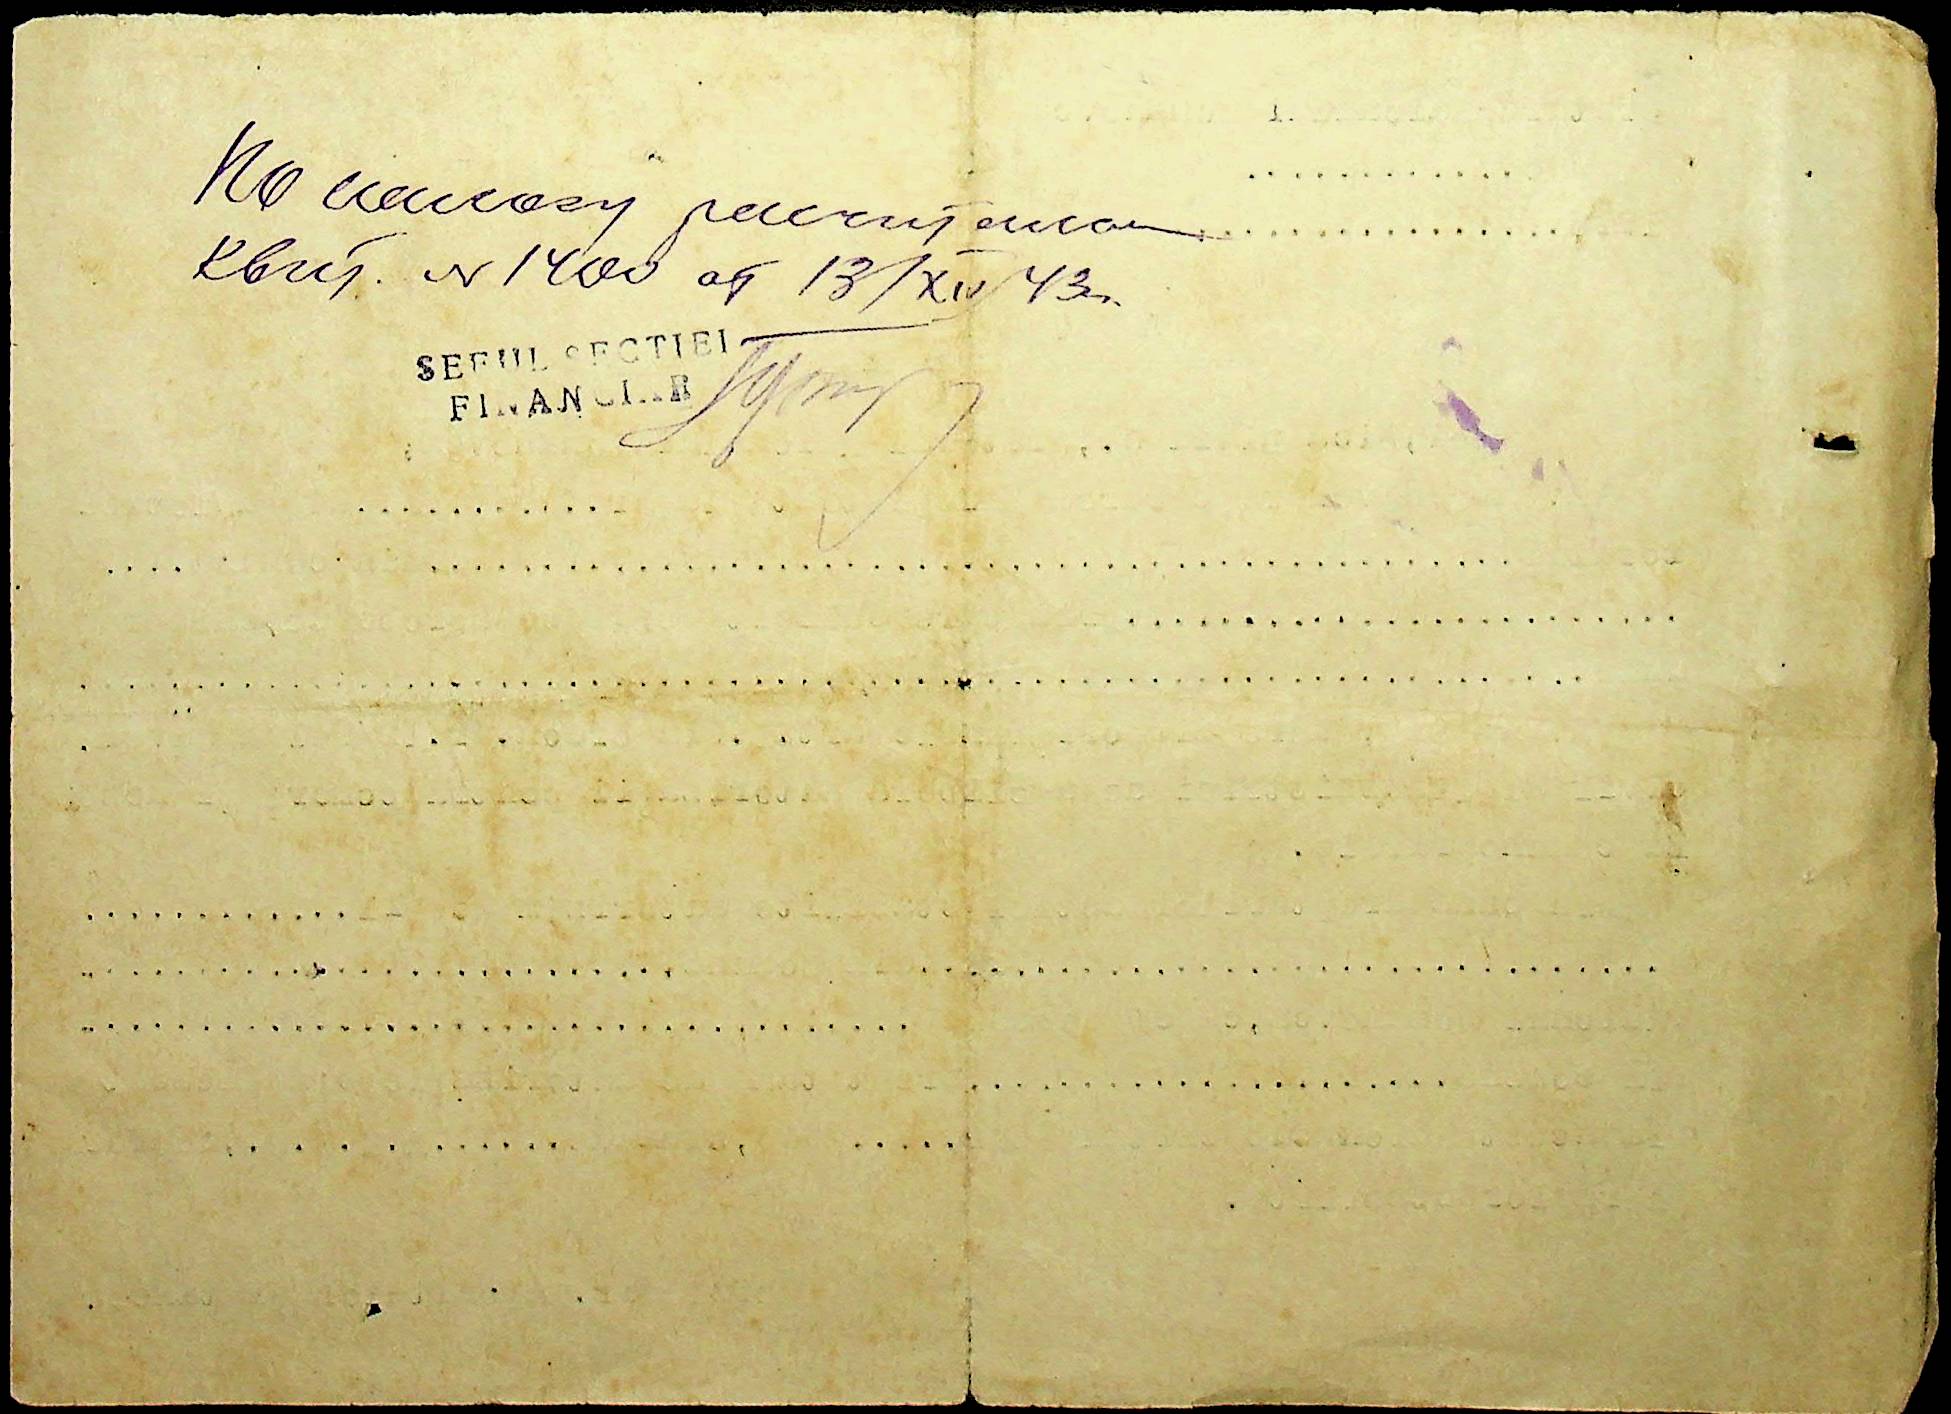 По налогу рассчитана
Квит. № 1400 от 13/XII 43 г.
SEFUL SECTIEI
FINANCIAR